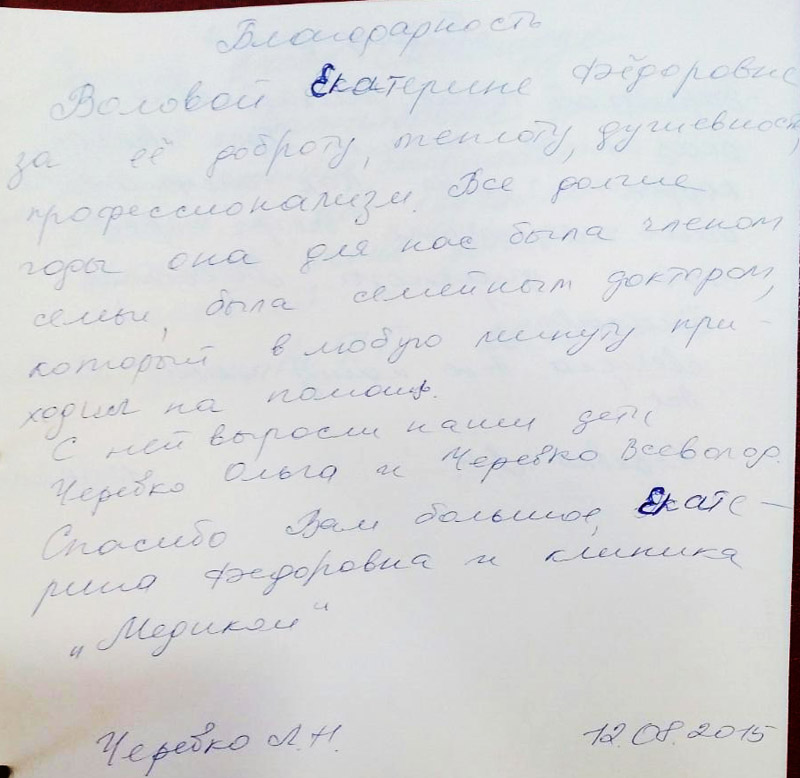 Благодарность
Воловой Екатерине Фёдоровне
за её доброту, теплоту, душевность,
профессионализм. Все долгие
годы она для нас была членом
семьи, была семейным доктором,
который в любую минуту при-
ходил на помощь.
С ней выросли наши дети
Черевко Ольга и Черевко Всеволод.
Спасибо Вам большое, Екате-
рина Федоровна и клиника
„Медиком"
Черевко Л.Н. 12.08.2015